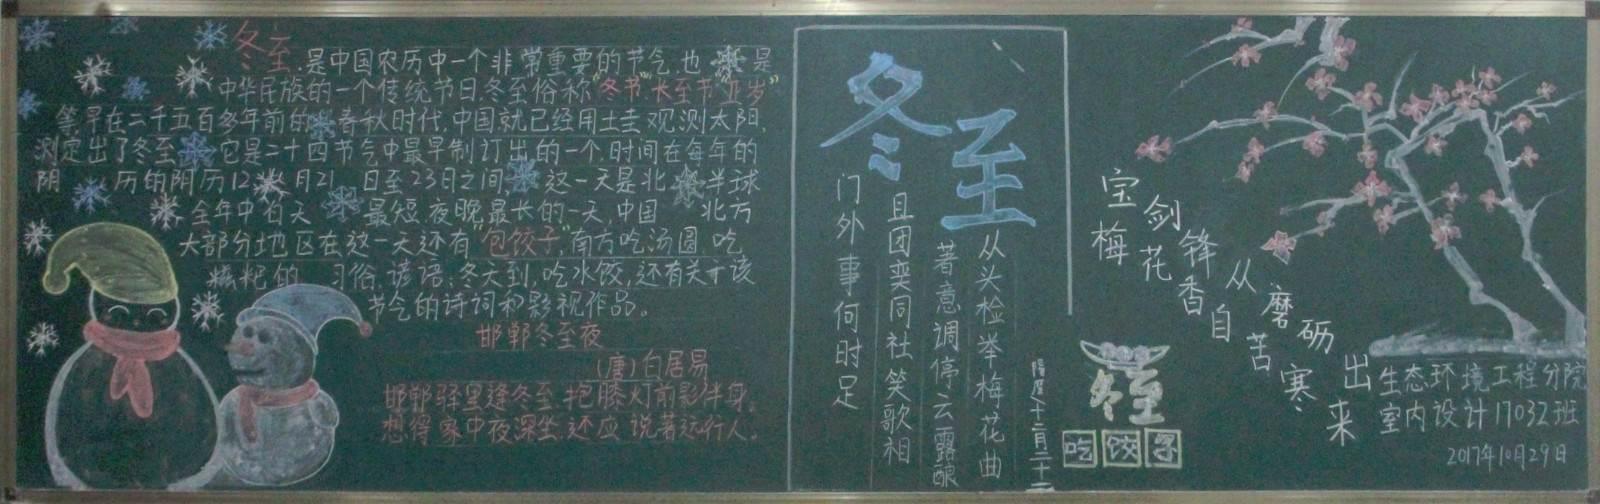 冬至是中国农历中一个非常重要的节气也是
中华民族的一个传统节日冬至俗称"冬节""长至节""亚岁"
等早在二千五百多年前的春秋时代,中国就已经用土圭观测太阳,
测定出了冬至 它是二十四节气中最早制订出的一个,时间在每年的
阴 历的阴历12 月21 日至23日之间, 这一天是北 半球
全年中白天 最短,夜晚最长的一天,中国 北方
大部分地区在这一天还有"包饺子",南方吃汤圆 吃
糍粑的 习俗,谚语:冬天到,吃水饺,还有关于该
节气的诗词和影视作品。
邯郸冬至夜
(唐)白居易
邯郸驿里逢冬至,抱膝灯前影伴身。
想得家中夜深坐,还应说着远行人。
冬至
从头检举梅花曲
著意调停云露酿
且团奕同社笑歌相
门外事何时足
阳历十二月二十二
冬至
吃饺子
宝剑锋从磨砺出
梅花香自苦寒来
生态环境工程分院
室内设计17032班
2017年10月29日